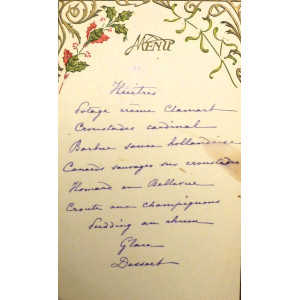 MENU
Huitres
Potage crème Clamart
Croustades cardinal
Barbue sauce hollandaise
Canards sauvages sur croustades
Homard en Bellevue
Croute aux champignons
Pudding au rhum
Glace
Dessert